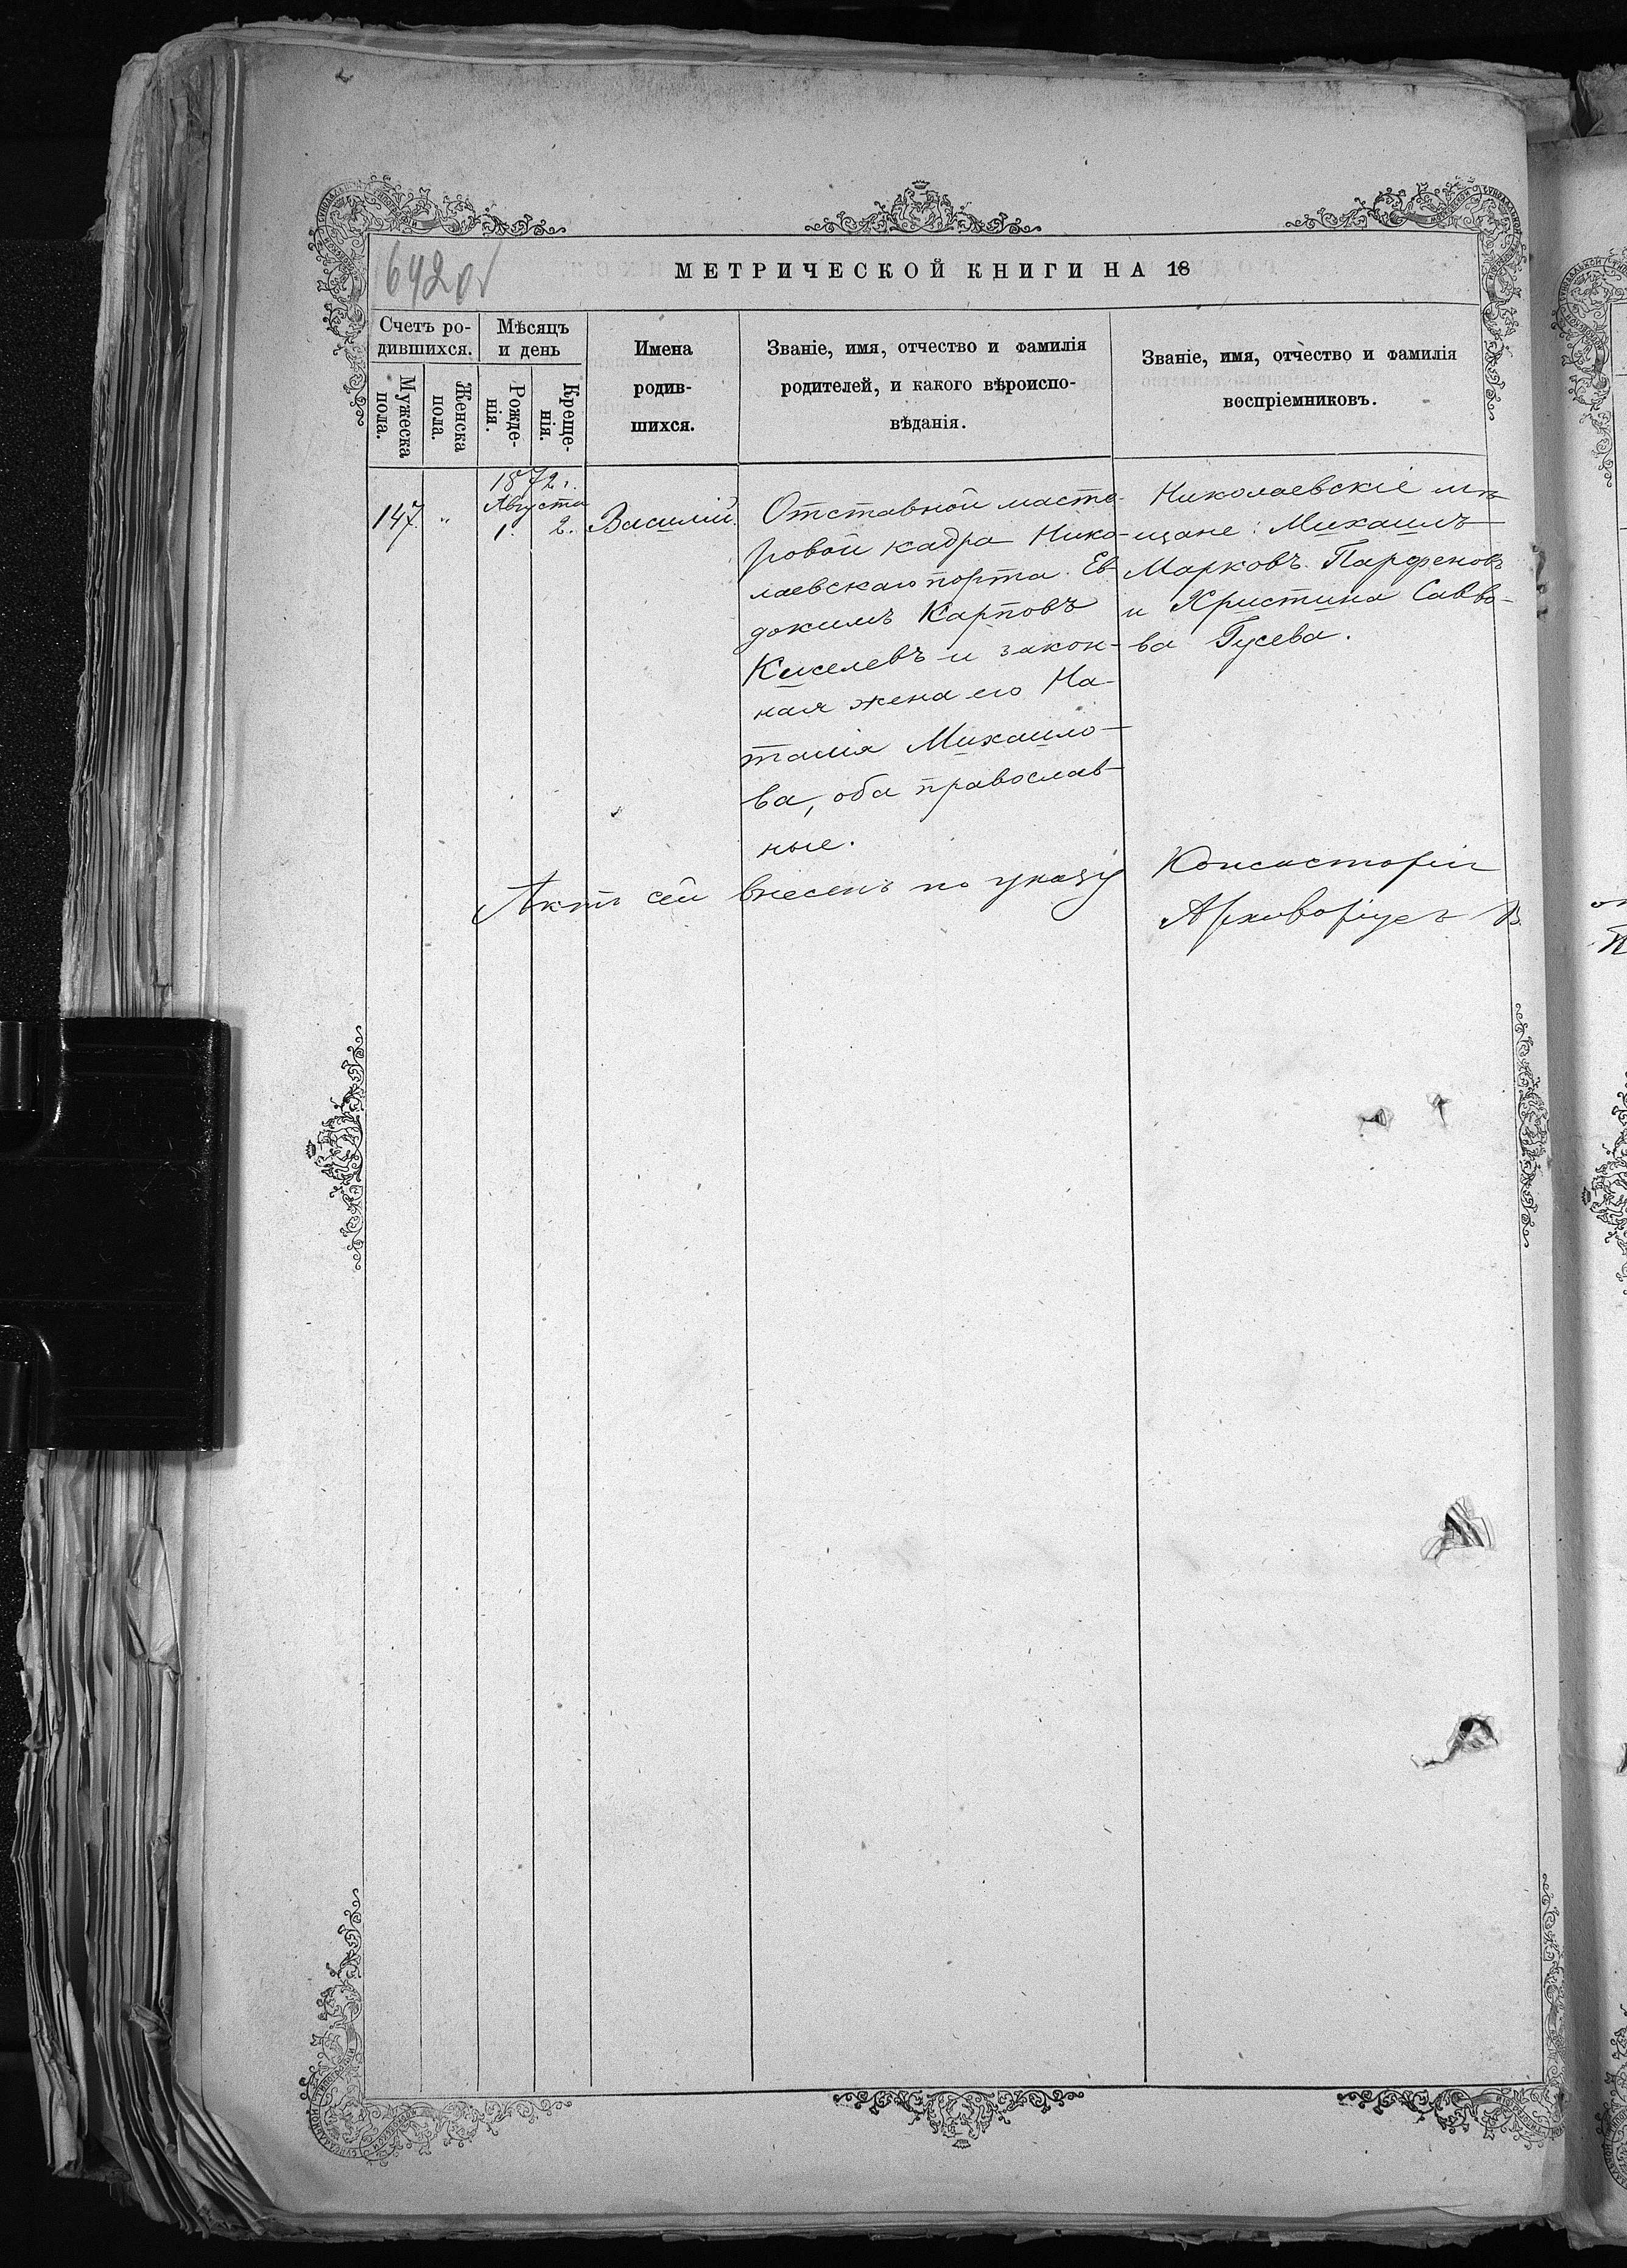 642 об
МЕТРИЧЕСКОЙ КНИГИ НА 18
Счетъ ро-
дившихся.
Мужеска
пола.
Женска
пола.
Мѣсяцъ
и день
Рожде-
нія.
Креще-
нія.
Имена
родив-
шихся.
Званіе, имя, отчество и фамилія
родителей, и какого вѣроиспо-
вѣданія.
Званіе, имя, отчество и фамилія
воспріемниковъ.
147.
"
1872 г.
Августа
1. 2.
Василій.
Отставной масте-
ровой кадра Нико-
лаевскаго порта Ев-
докимъ Карповъ
Киселевъ и закон-
ная жена его На-
талія Михаило-
ва, оба православ-
ные.
Николаевскіе мѣ-
щане: Михаилъ
Марковъ Парфеновъ
и Христина Савво-
ва Гусева.
Актъ сей внесенъ по указу Консисторіи
Архиваріусъ В.